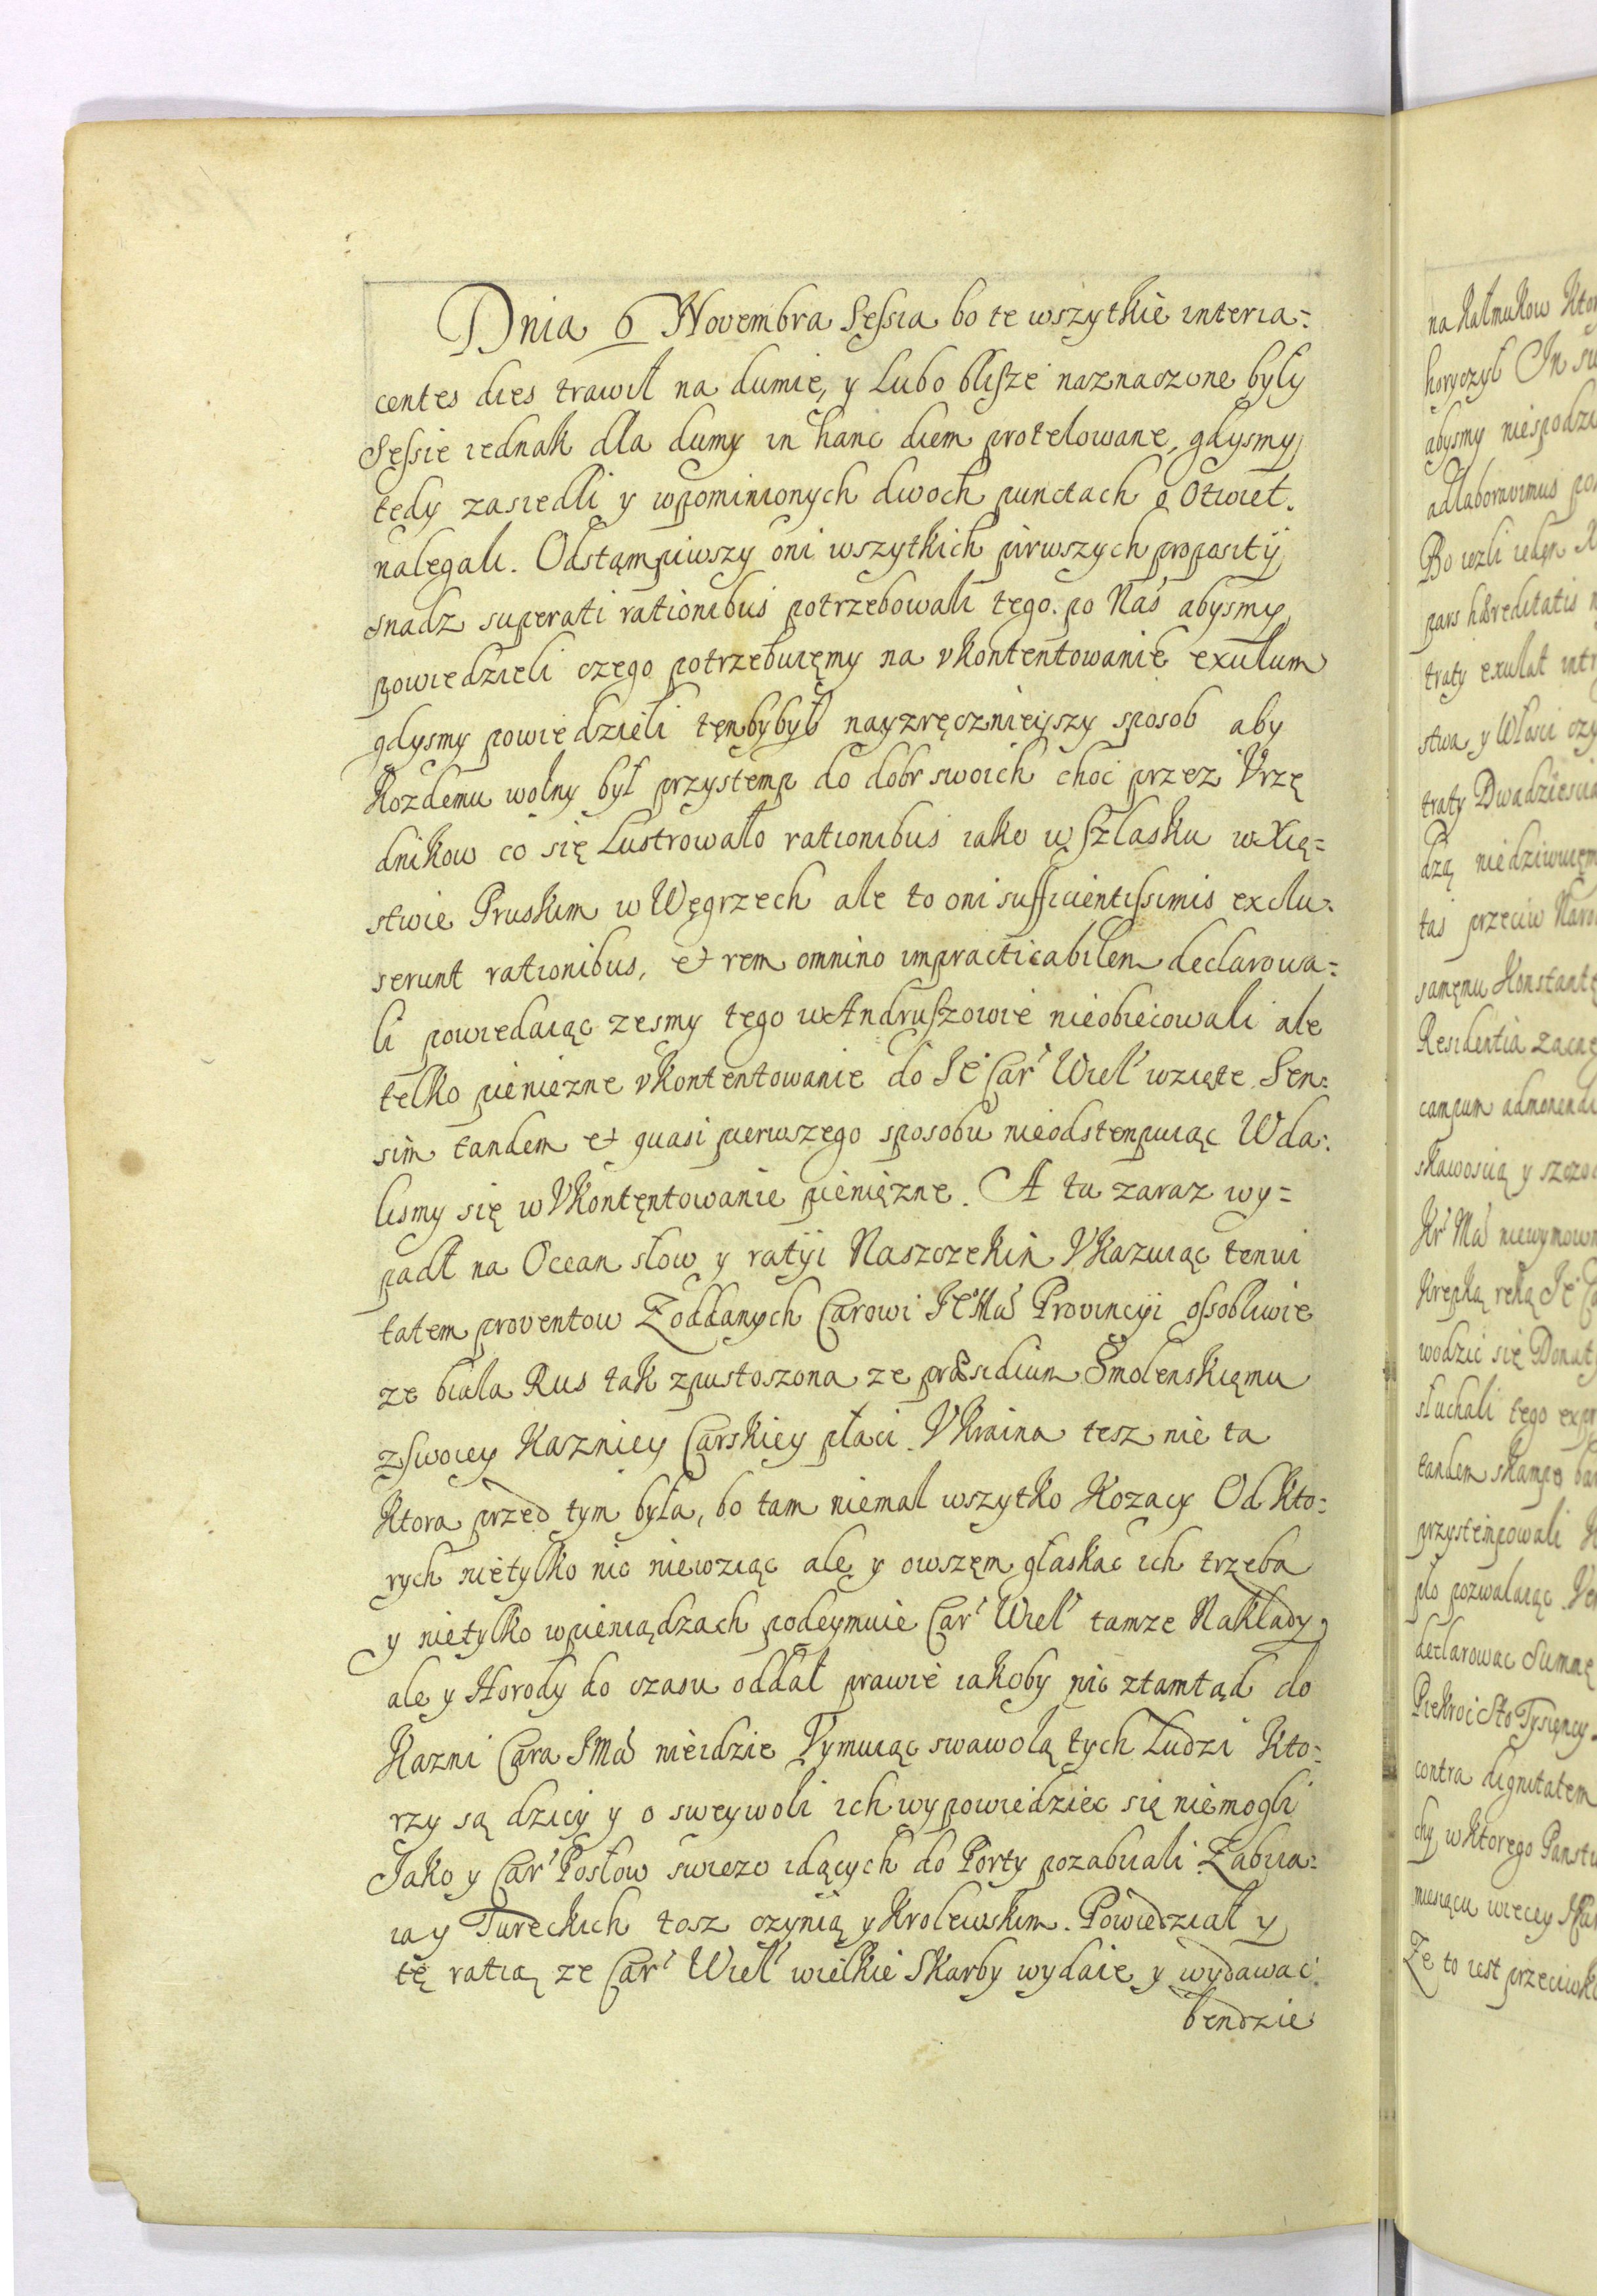 Dnia 6 Novembra Sessia bo te wszytkie interia=
centes dies trawił na dumie, y Lubo bliſze naznaczone były
Seſsie iednak dla dumy in hanc diem protelowane, gdysmy
tedy zasiedli y wpominionych dwoch punctach o Otwiet.
nalegali. Odstąmpiwszy oni wszytkich pirwszych propositij
snadz superati rationibus potrzebowali tego po Nas abysmy
powiedzieli czego potrzebuięmy na vkontentowanie exulum
gdysmy powiedzieli tęnbybył nayzręcznieiszy sposob aby
Kozdemu wolny był przystemp do dobr swoich choc przez Vrzę
dnikow co się Lustrowało rationibus iako w Szlasku w Xię=
stwie Pruskim w Węgrzech ale to oni sufficientiſsimis exclu=
serunt rationibus, et rem omnino impracticabilem declarowa=
li powiedaiąc zesmy tego w Andruſzowie nieobiecowali ale
telko pieniezne vkontentowanie do Je Car Wiel wzięte. Sen=
sim tandem et quasi pierwszego sposobu nieodstempuiąc Wda=
lismy się w Vkontęntowanie pieniężne. A tu zaraz wy=
padł na Ocean słow y ratiji Naszczekin Vkazuiąc tenui
tatem proventow Zoddanych Carowi JE Ma Provincyi oſsobliwie
ze biała Rus tak zpustoszona ze præsidium Smolenskięmu
zſwoiey Kazniey Carskiey płaci. Vkraina tesz nie ta
Ktora przed tym była, bo tam niemal wszytko Kozacy Od kto=
rych nietylko nic niewziąc ale y owszęm głaskac ich trzeba
y nietylko wpieniądzach podeymuie Car Wiel tamze Nakłady
ale y Horody do czasu oddał prawie iakoby nic ztamtąd do
Kazni Cara JMa nieidzie Vymuiąc swawolą tych Ludzi Kto=
rzy są dzicy y o sweywoli ich wypowiedziec się niemogli
Jako y Car Posłow swiezo idących do Porty pozabiiali Zabiia=
ią y Tureckich tosz czynią y Krolewskim. Powiedział y
tę ratią ze Car Wiel wielkie Skarby wydaie y wydawac
bendzie
na Kałmukow Ktor
horyczył In su
abysmy niespodzi
adlaboravimus po
pars hæreditatis n
traty exulat int
stwa y Włosci czy
traty Dwadziescia
dzą niedziwuięm
tas przeciw Naro
samęmu Konstante
Residentia zacne
campum admonendi
skawoscią y szczo
Kr Ma niewymown
Krepką reką Je Ca
wodzic się Donat
słuchali tego exp
tandem skampo ba
przystempowali K
pło pozwalaiąc Ve
declarowac Summę
Piekroc Sto Tysięncy
contra dignitatem
chy w Ktorego Panstw
miesiącu wiecey
Ze to iest przeciwko